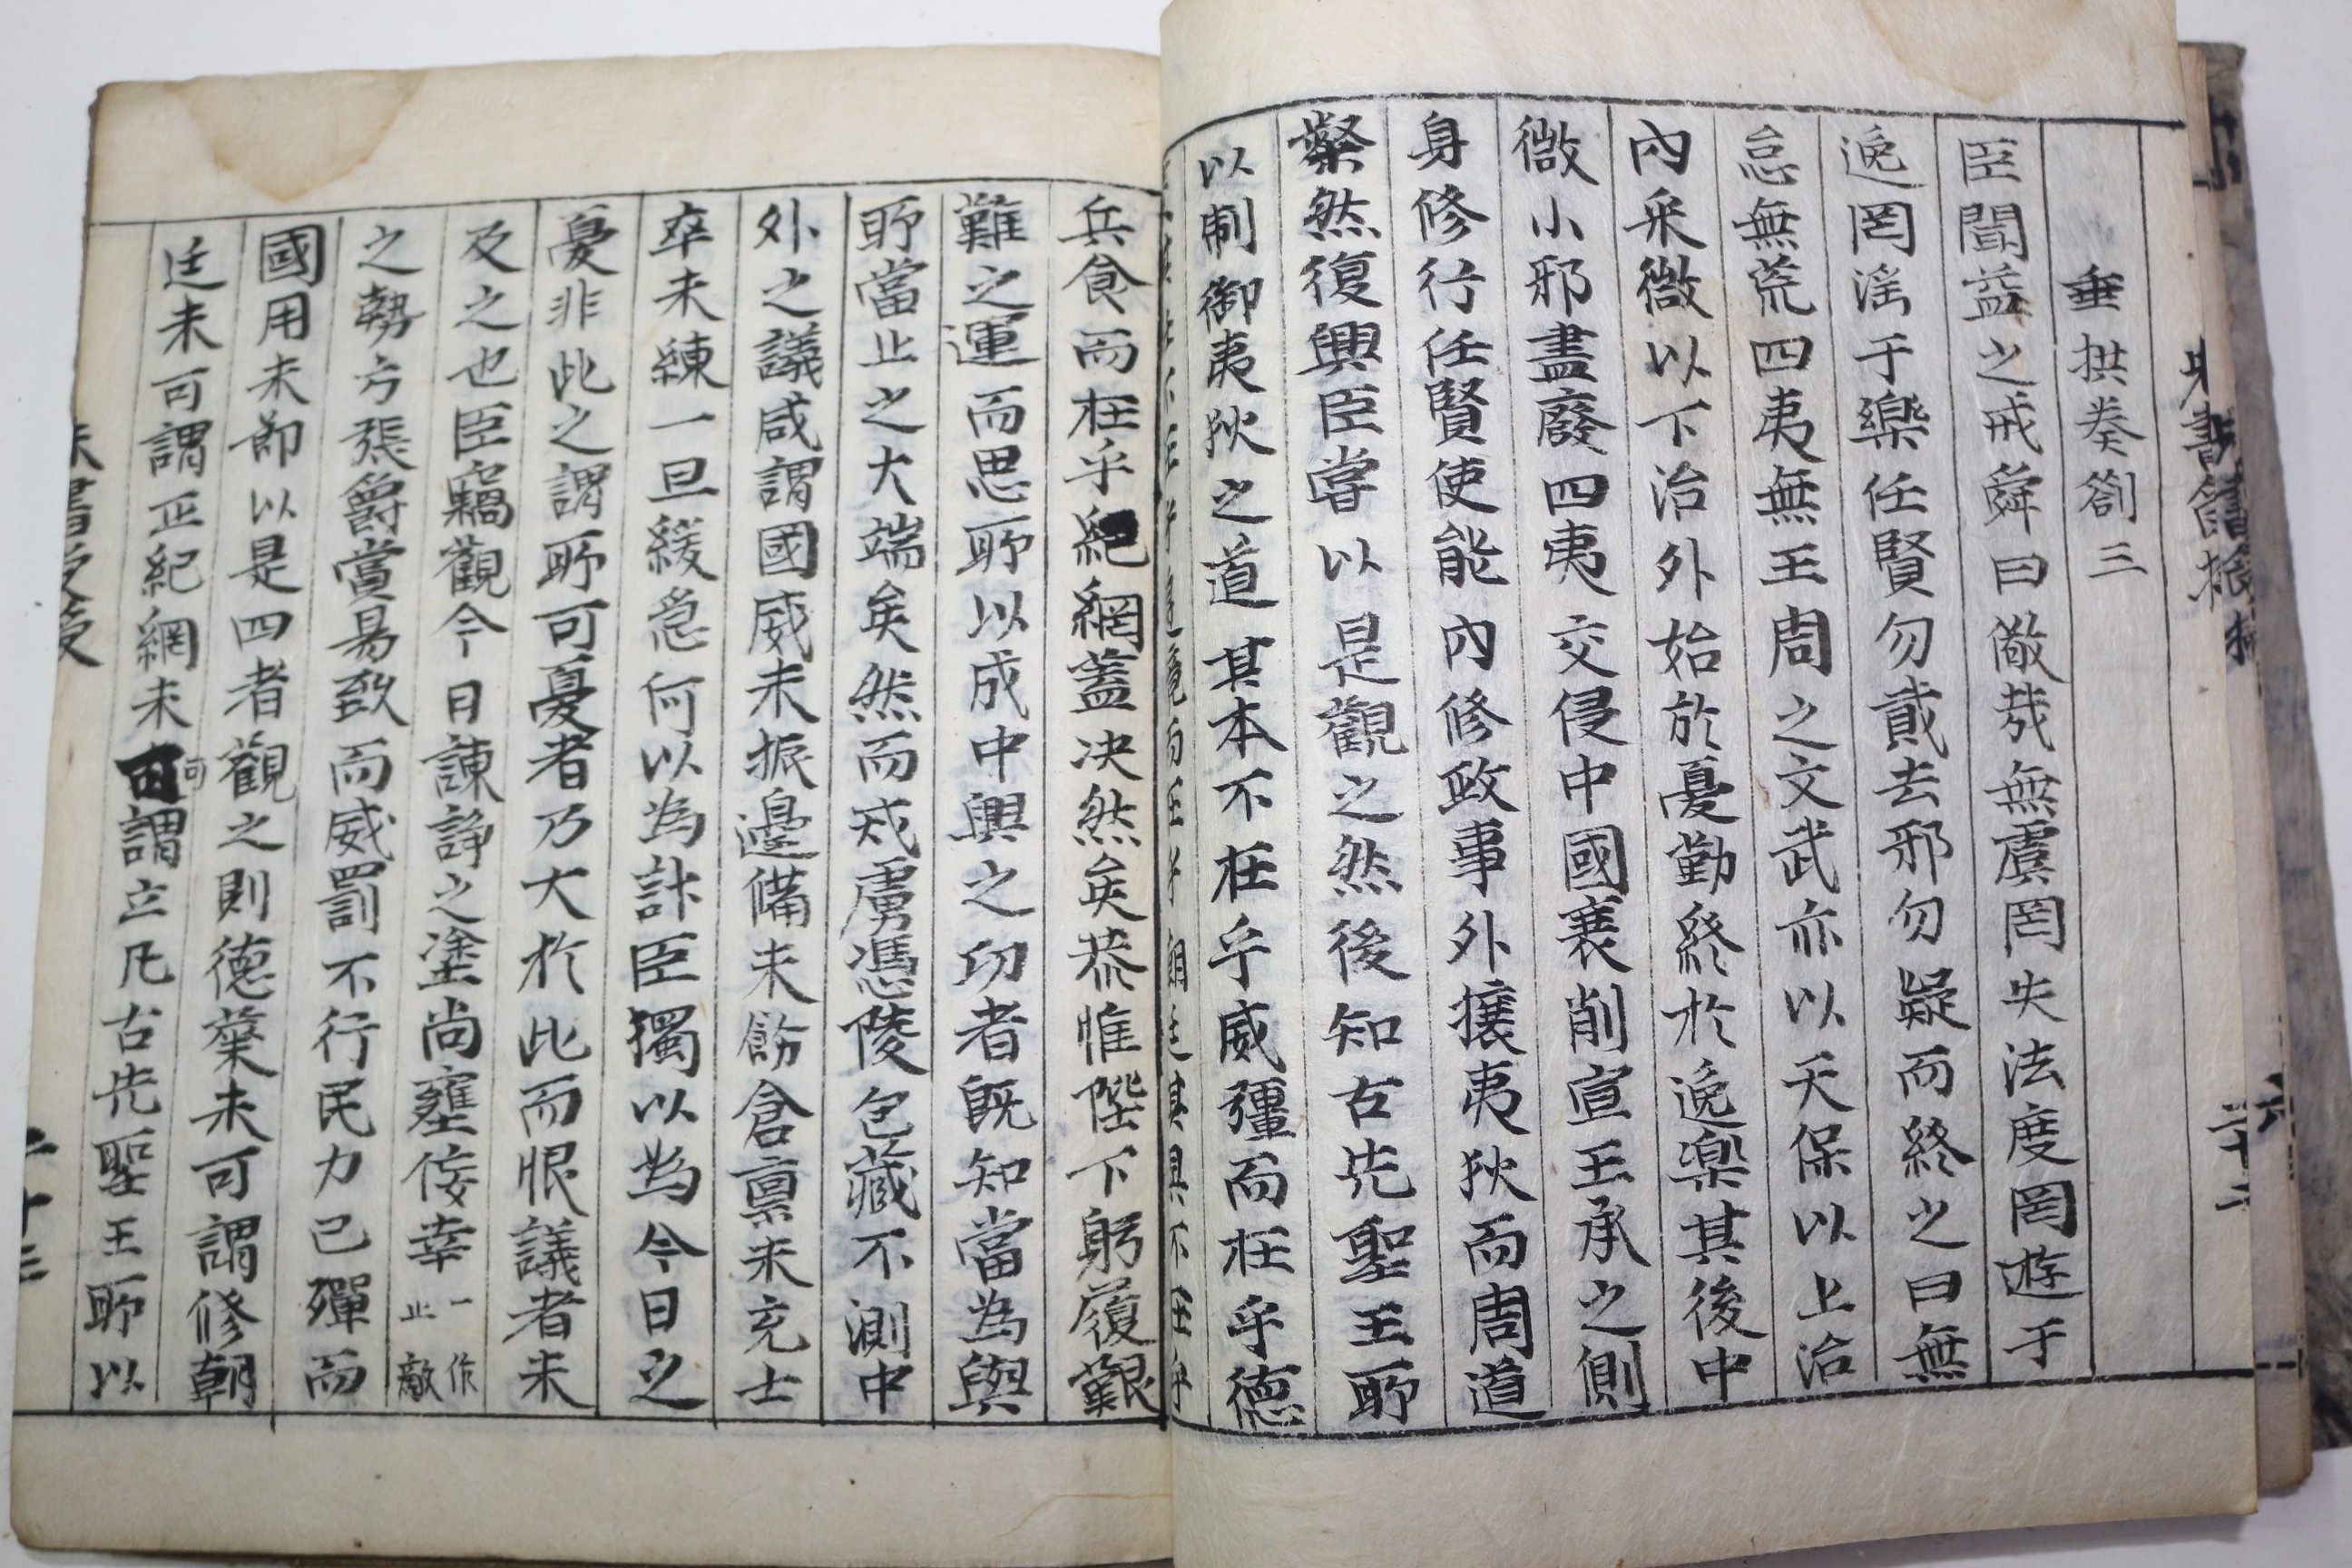 垂拱奏箚三
臣聞益之戒舜曰儆哉無虞罔失法度罔遊于
逸罔滛于樂任賢勿貳去邪勿疑而終之曰無
怠無荒四夷無王周之文武亦以天保以上治
內采微以下治外始於憂勤終於逸楽其後中
微小邪盡廢四夷交侵中國衰削宣王承之側
身修行任賢使能內修政事外攘夷狄而周道
粲然復興臣嘗以是觀之然後知古先聖王所
以制御夷狄之道其本不在乎威彊而在乎德
兵食而在乎紀綱蓋决然矣恭惟陛下躬履艱
難之運而思所以成中興之功者旣知當為與
所當止之大端矣然而戎虜憑陵包藏不測中
外之議咸謂國威未振邊備未飭倉禀未充士
卒未練一旦緩急何以為計臣獨以為今日之
憂非此之謂所可憂者乃大於此而恨議者未
及之也臣竊觀今日諫諍之塗尚壅侫幸一作止敵
之勢方張爵賞易致而威罰不行民力已殫而
國用未節以是四者觀之則德葉未可謂修朝
廷未可謂正紀網未可謂立凡古先聖王所以